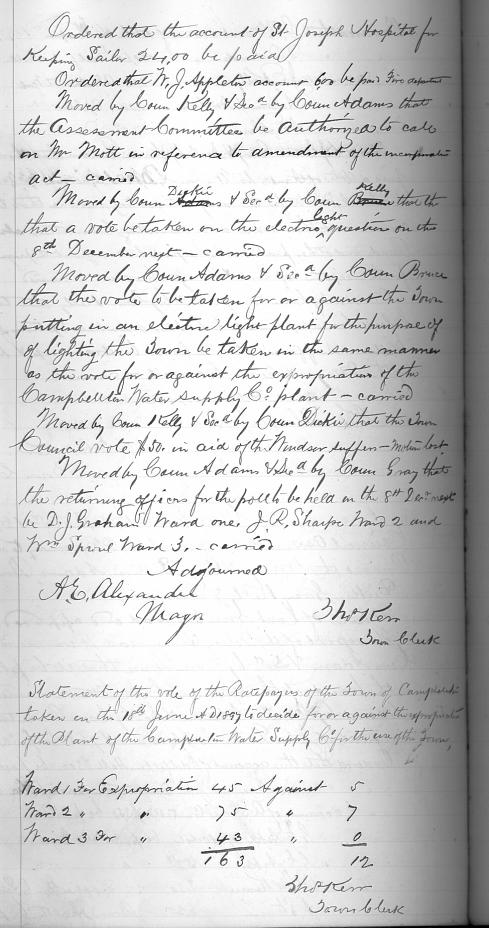 Ordered that the account of St Joseph Hospital for
Keeping Sailor 24,00 be paid
Ordered that W. J. Appleton account 6,00 be paid Fire department
Moved by Coun Kelly & Secd by Coun Adams that
the Assessment Committee be authorized to call
on Mr Mott in reference to amendment of the incorporation
act — carried
Moved by Coun Adams Dickie & Secd by Coun Bruce Kelly that the
that a vote be taken on the electric light question on the
8th December next — carried
Moved by Coun Adams & Secd by Coun Bruce
that the vote to be taken for or against the Town
putting in an electric light plant for the purpose of
of lighting the Town be taken in the same manner
as the vote for or against the expropriation of the
Campbellton Water Supply Co plant — carried
Moved by Coun Kelly & Secd by Coun Dickie that the Town
Council vote $50. in aid of the Windsor suffers — motion lost
Moved by Coun Adams & Secd by Coun Gray that
the returning officers for the poll to be held on the 8th Decr next
be D. J. Graham Ward one, J. R. Sharpe Ward 2 and
Wm Sproul Ward 3. — carried
Adjourned
A. E. Alexander
Mayor
Thos Kerr
Town Clerk
Statement of the vote of the Ratepayers of the Town of Campbellton
taken on the 18th June AD 1897 to decide for or against the expropriation
of the Plant of the Campbellton Water Supply Co for the use of the Town,
Ward 1 For Expropriation 45 Against 5
Ward 2 " " 75 " 7
Ward 3 For " 43 " 0
163 12
Thos Kerr
Town Clerk